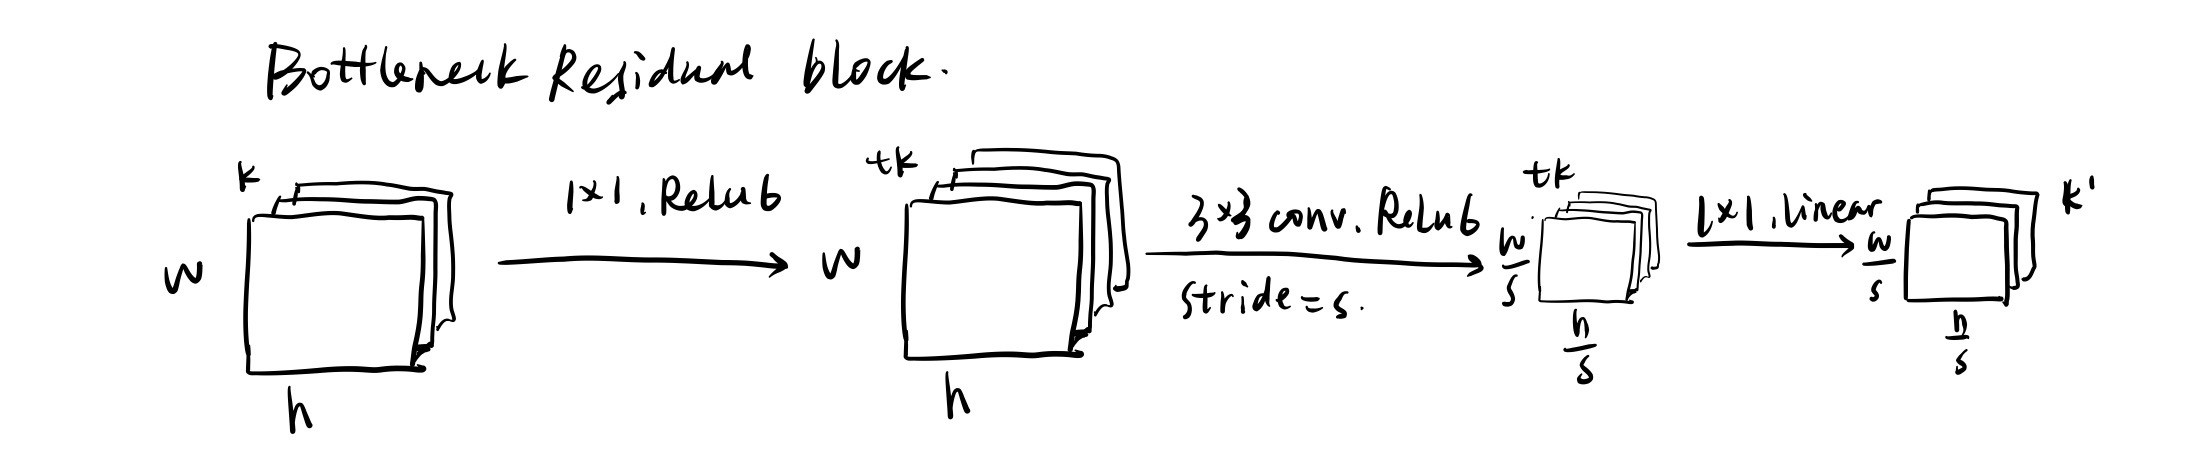 Bottleneck Residual block.
k
w
h
1×1, Relu6
tk
w
h
3×3 conv. ReLu6
stride=s.
tk
w
s
h
s
1×1, linear
w
s
h
s
k'